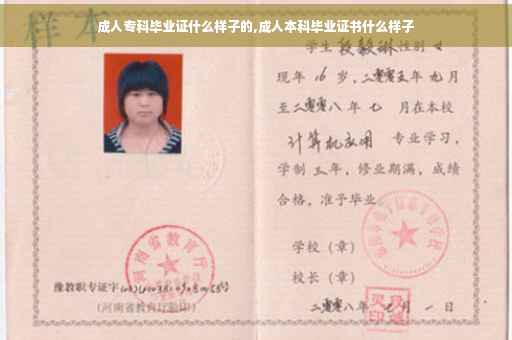 成人专科毕业证什么样子的,成人本科毕业证书什么样子
样本
学生 段毅琳 性别 女
现年 16 岁，二零零五年 九 月
至二零零八年 七 月在本校
计算机应用 专业学习，
学制 三 年，修业期满，成绩
合格，准予毕业
学校（章）
校长（章）
二零零八年 七 月 一 日
河南省教育厅
豫教职专证字
(河南省教育厅验印)